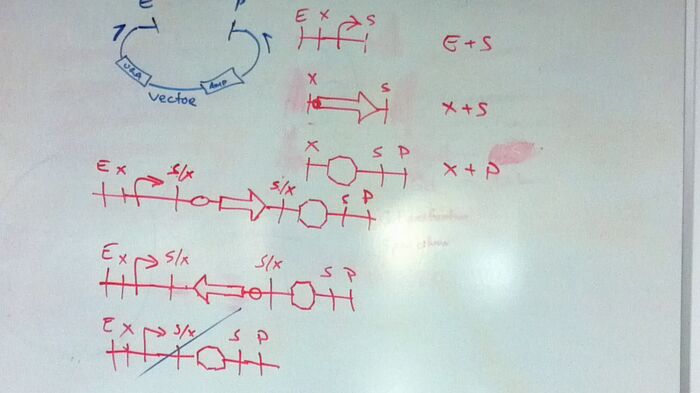 E P
URA AMP
vector
E X S E+S
X S X+S
X S P X+P
E X S/X S/X S P
E X S/X S/X S P
E X S/X S P